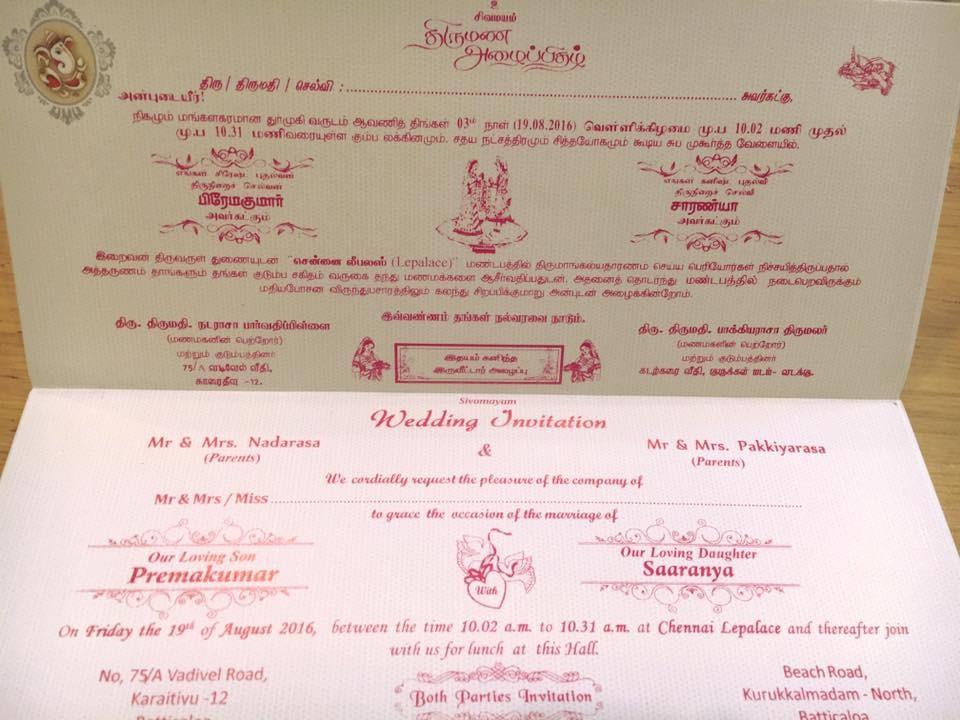 உ
சிவமயம்
திருமண
அழைப்பிதழ்
திரு/ திருமதி / செல்வி : ........................................ அவர்கட்கு,
அன்புடையீர்!
நிகழும் மங்களகரமான துர்முகி வருடம் ஆவணித் திங்கள் 03ம் நாள் (19.08.2016) வெள்ளிக்கிழமை மு.ப 10.02 மணி முதல்
மு.ப 10.31 மணிவரையுள்ள கும்ப லக்கினமும். சதய நட்சத்திரமும் சித்தயோகமும் கூடிய சுப முகூர்த்த வேளையில்.
எங்கள் சிரேஷ்ட புதல்வன்
திருநிறைச் செல்வன்
பிரேமகுமார்
அவர்கட்கும்
எங்கள் கனிஷ்ட புதல்வி
திருநிறைச் செல்வி
சாரண்யா
அவர்கட்கும்
இறைவன் திருவருள் துணையுடன் "சென்னை லீபலஸ் (Lepalace)" மண்டபத்தில் திருமாங்கல்யதாரணம் செய்ய பெரியோர்கள் நிச்சயித்திருப்பதால்
அத்தருணம் தாங்களும் தங்கள் குடும்ப சகிதம் வருகை தந்து மணமக்களை ஆசீர்வதிப்பதுடன். அதனைத் தொடர்ந்து மண்டபத்தில் நடைபெறவிருக்கும்
மதியபோசன விருந்துபசாரத்திலும் கலந்து சிறப்பிக்குமாறு அன்புடன் அழைக்கின்றோம்.
இவ்வண்ணம் தங்கள் நல்வரவை நாடும்.
திரு. திருமதி. நடராசா பார்வதிப்பிள்ளை
(மணமகனின் பெற்றோர்)
மற்றும் குடும்பத்தினர்
75/A வடிவேல் வீதி,
காரைதீவு -12.
இதயம் கனிந்த
இருவீட்டார் அழைப்பு
திரு. திருமதி. பாக்கியராசா திருமலர்
(மணமகளின் பெற்றோர்)
மற்றும் குடும்பத்தினர்
கடற்கரை வீதி, குருக்கள் மடம்- வடக்கு.
Sivamayam
Wedding Invitation
Mr & Mrs. Nadarasa
(Parents)
&
Mr & Mrs. Pakkiyarasa
(Parents)
We cordially request the pleasure of the company of
Mr & Mrs / Miss ........................................
to grace the occasion of the marriage of
Our Loving Son
Premakumar
With
Our Loving Daughter
Saaranya
On Friday the 19th of August 2016, between the time 10.02 a.m. to 10.31 a.m. at Chennai Lepalace and thereafter join
with us for lunch at this Hall.
No, 75/A Vadivel Road,
Karaitivu -12
Batticaloa
Both Parties Invitation
Beach Road,
Kurukkalmadam - North,
Batticaloa